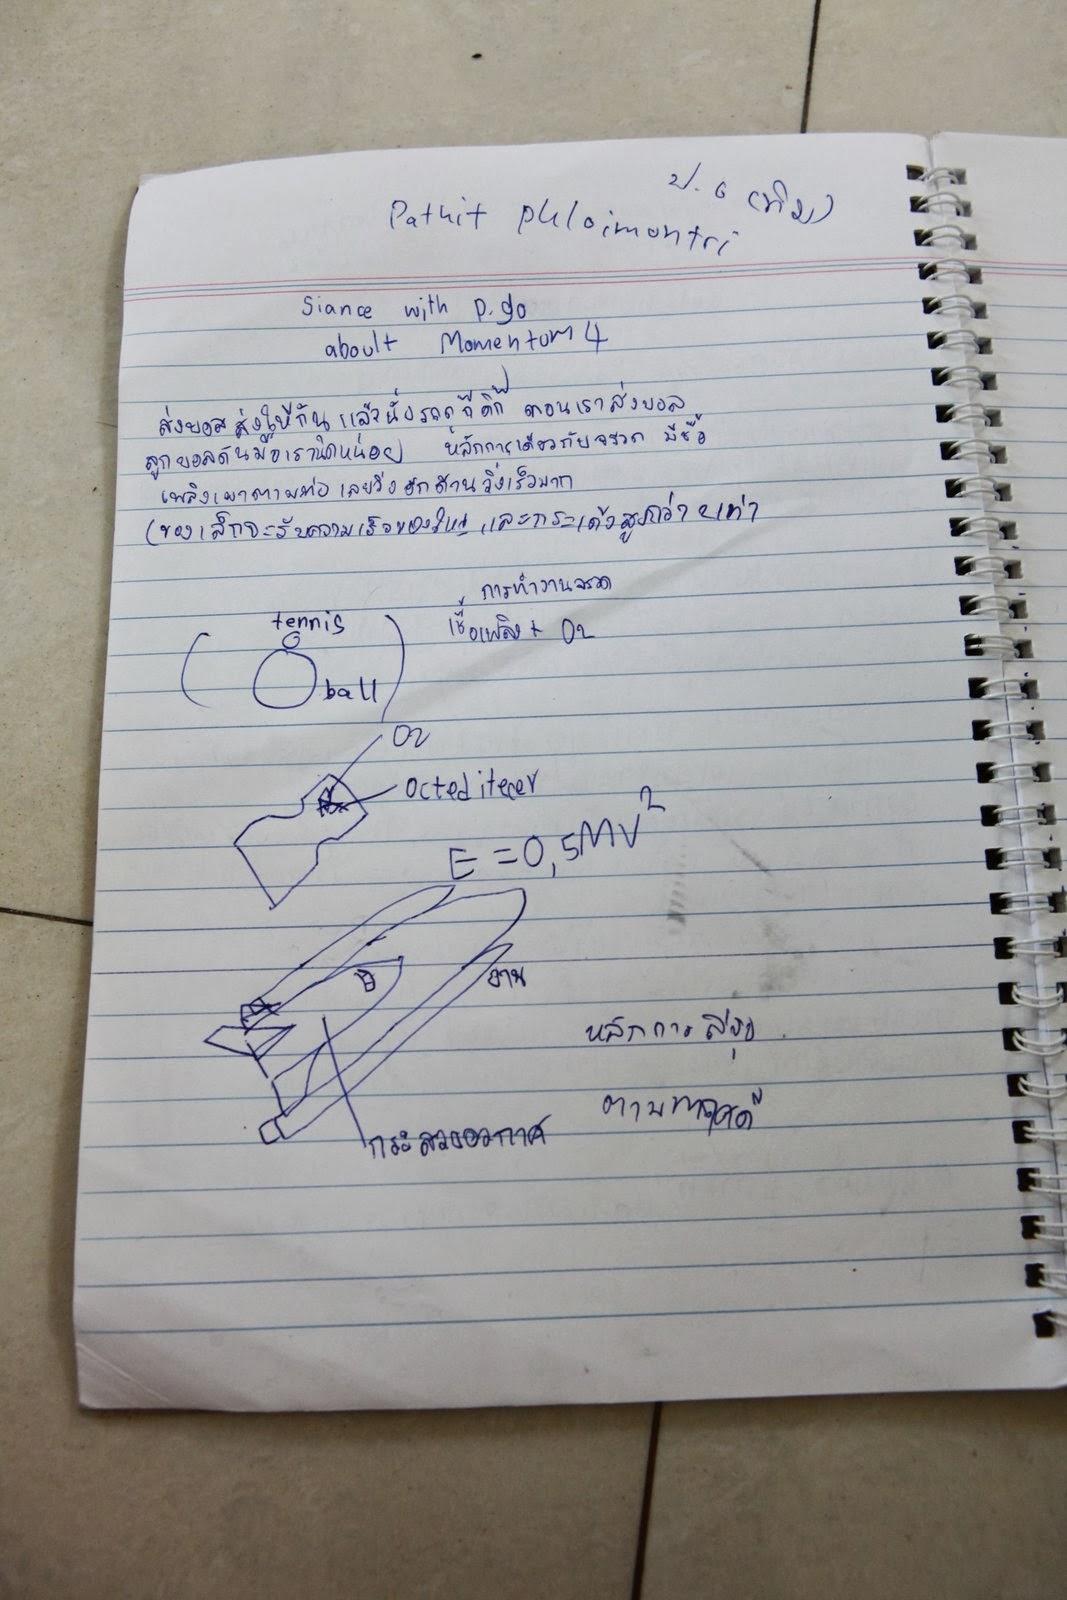 ป.6 (ทิม)
Pathit phloimontri
Siance with p.go
aboult Momentum 4
ส่งบอลส่งให้กัน แล้วนั่งรถกิ๊ดิก๊ ตอนเราส่งบอล
ลูกบอลดันมือเรานิดหน่อย หลักการเดียวกับจรวด มีชื้อ
เพลิงเผาตามท่อ เลยวิ่งอีกด้านวิ่งเร็วมาก
(ของเล็กจะรับความเร็วของใหญ่ และกระเด้งสูงกว่า เท่า
การทำงานจรวด
เชื้อเพลิง + O2
tennis
ball
O2
E = 0,5MV²
ยาน
หลักการ
ตามทฤษดี
กระสวยอวกาศ